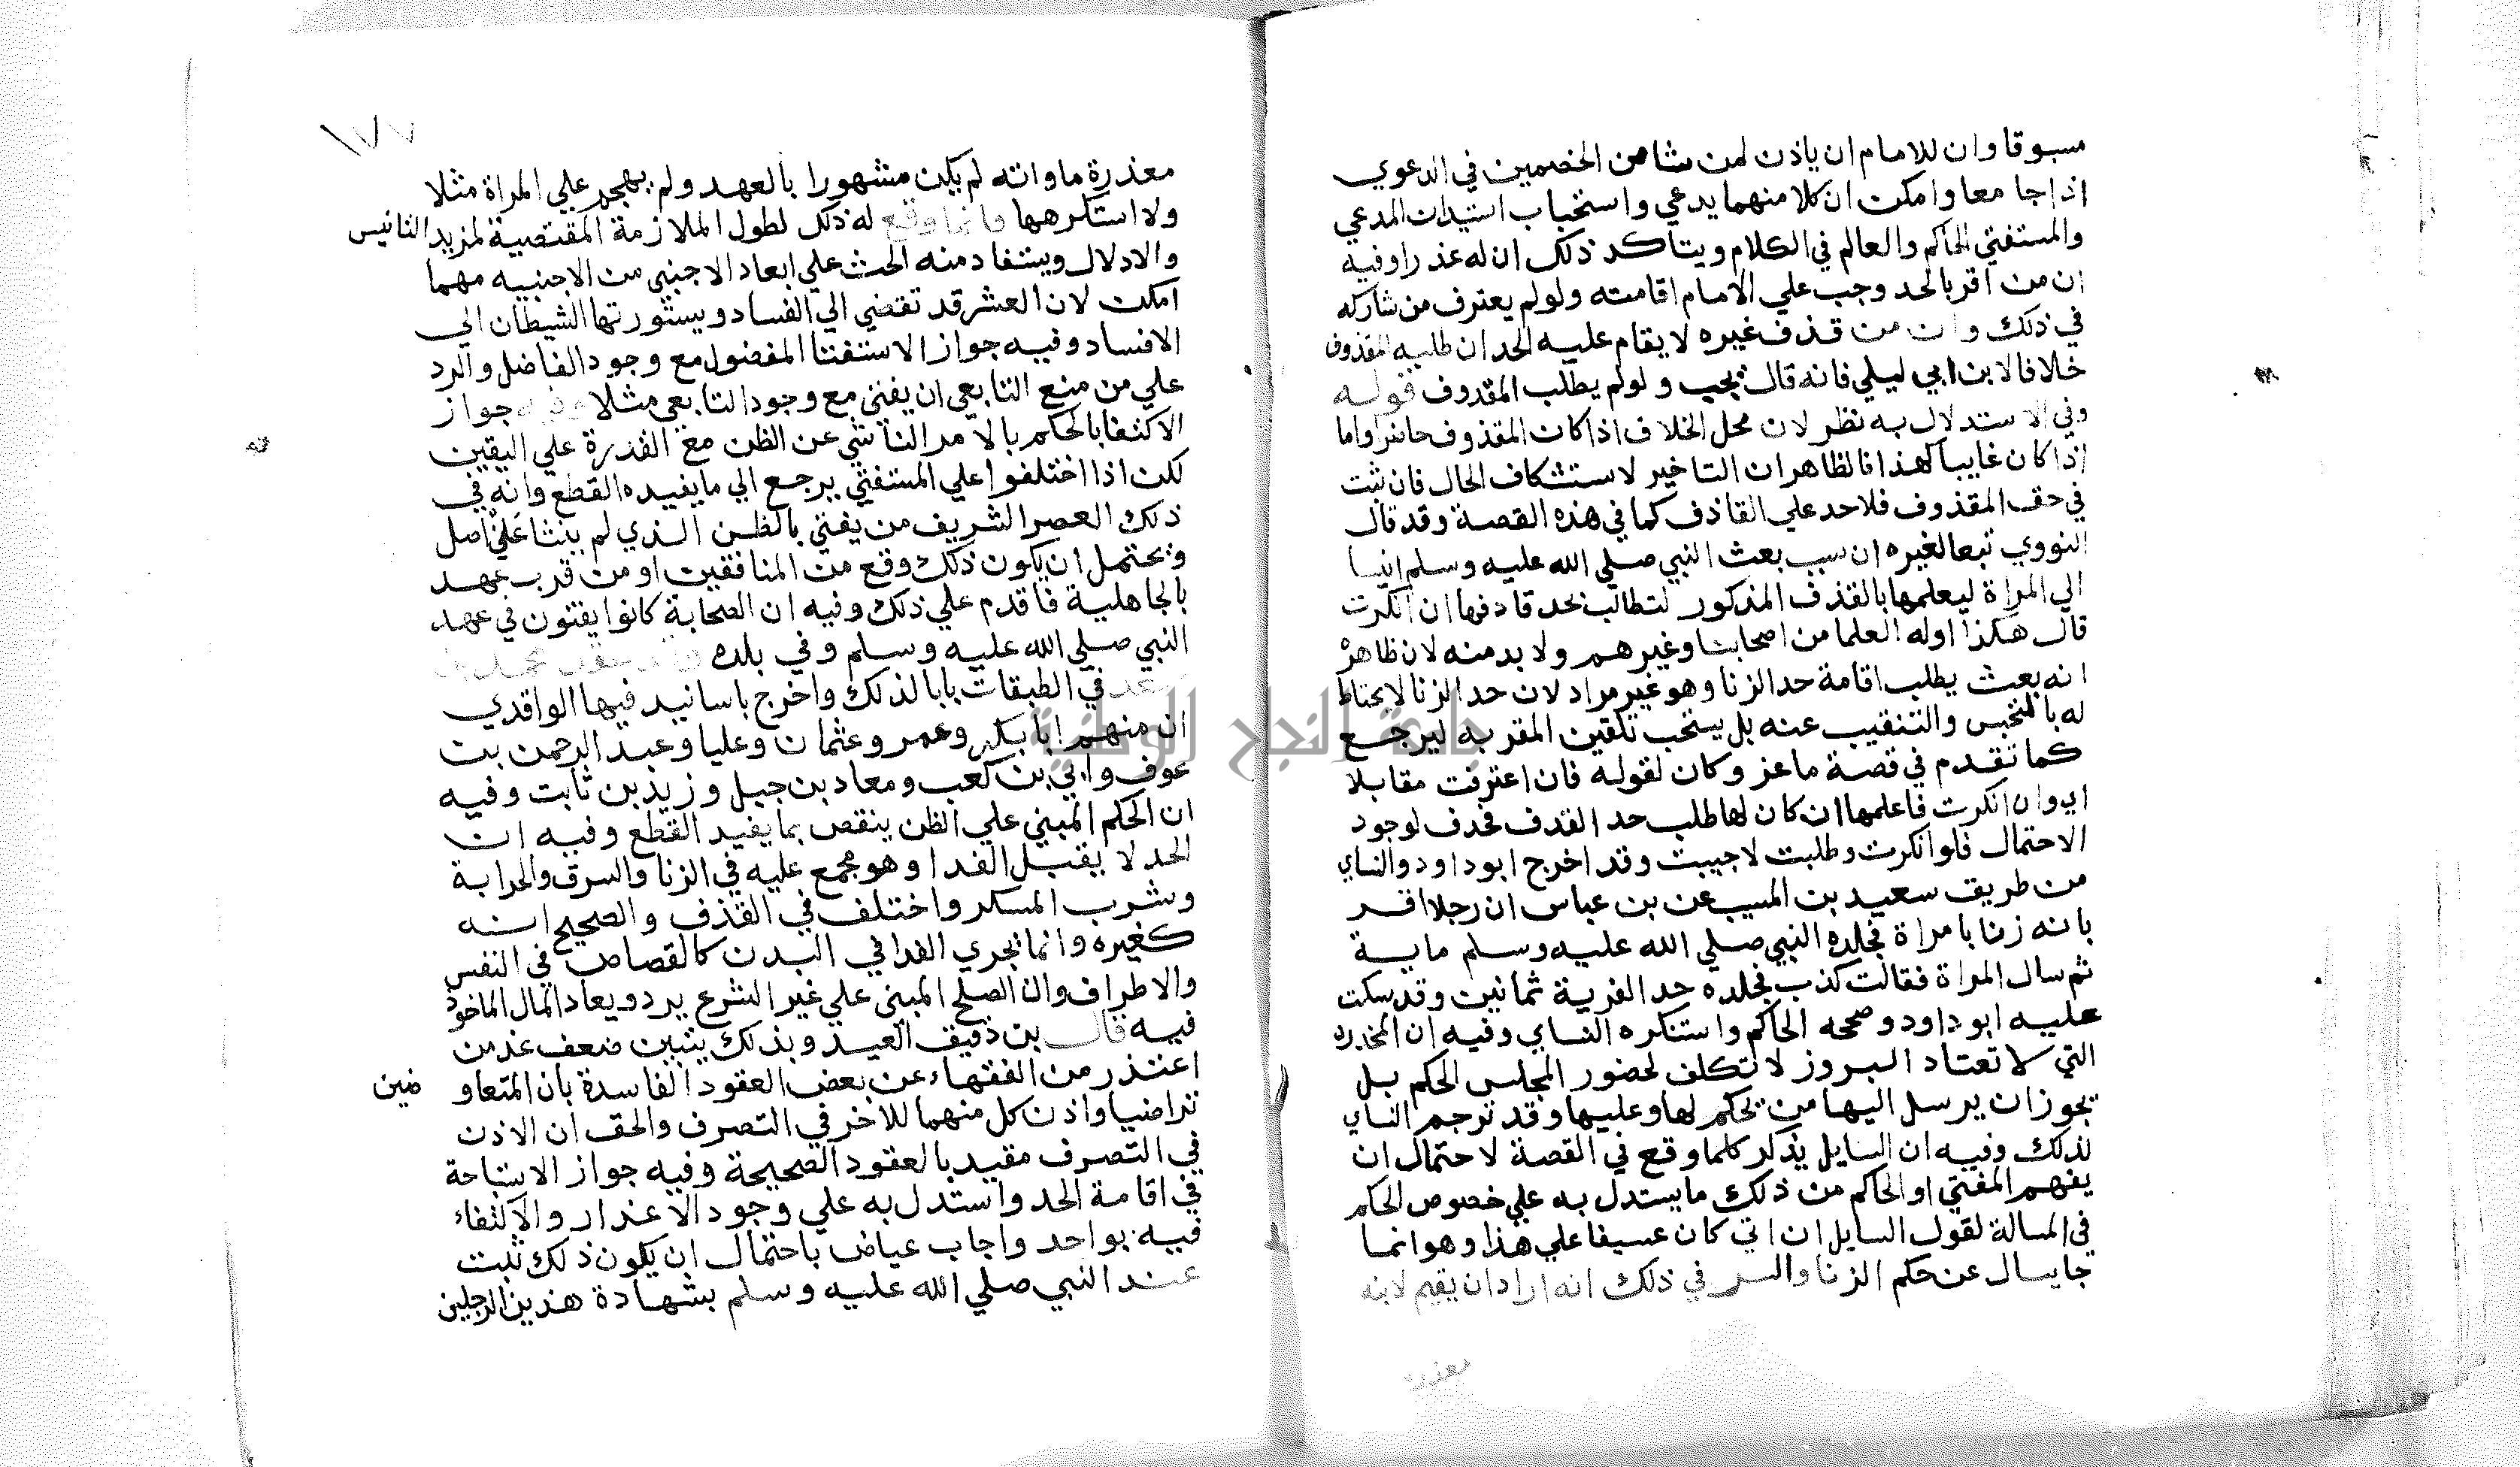 مسبوقا وان للامام ان ياذن لمن شا من الخصمين في الدعوي
اذا جا معا وامكن ان كلا منهما يدعي واستحباب استيدان المدعي
والمستفتي الحاكم والعالم في الكلام ويتاكد ذلك ان له عذرا وفيه
ان من اقر بالحد وجب علي الامام اقامته ولو لم يعترف من شاركه
في ذلك وان من قذف غيره لا يقام عليه الحد ان طلبه المقذوف
خلافا لابن ابي ليلي فانه قال يجب ولو لم يطلب المقدوف قوله
وفي الاستدلال به نظر لان محل الخلاف اذا كان المقذوف حاضرا واما
اذا كان غايبا لهذا فالظاهر ان التاخير لاستشكاف الحال فان ثبت
في حق المقذوف فلا حد علي القاذف كما في هذه القصة وقد قال
النووي تبعا لغيره ان سبب بعث النبي صلي الله عليه وسلم انيسا
الي المراة ليعلمها بالقذف المذكور لتطالب بحد قادفها ان انكرت
قال هكذا اوله العلما من اصحابنا وغيرهم ولا بد منه لان ظاهره
انه بعث يطلب اقامة حد الزنا وهو غير مراد لان حد الزنا لا يحتاط
له بالتجس والتنقيب عنه بل يستحب تلقين المقر به ليرجع
كما تقدم في قصة ماعز وكان لقوله فان اعترفت مقابلا
اي وان انكرت فاعلمها ان كان لها طلب حد القدف فحدف لوجود
الاحتمال فلو انكرت وطلبت لاجيبت وقد اخرج ابو داود والنساي
من طريق سعيد بن المسيب عن بن عباس ان رجلا اقر
بانه زنا بامراة فجلده النبي صلي الله عليه وسلم ماية
ثم سال المراة فقالت كذب فجلده حد الفرية ثمانين وقد سكت
عليه ابو داود وصححه الحاكم واستنكره النساي وفيه ان المخدره
التي لا تعتاد البروز لا تكلف لحضور المجلس الحكم بل
يجوز ان يرسل اليها من يحكم لها وعليها وقد ترجم النساي
لذلك وفيه ان السايل يذكر كلما وقع في القصة لاحتمال ان
يفهم المفتي او الحاكم من ذلك ما يستدل به علي خصوص الحكم
في المسالة لقول السايل ان ابني كان عسيفا علي هذا وهو انما
جا يسال عن حكم الزنا والسر في ذلك انه اراد ان يقيم لابنه
معذرة
١٧٧
معذرة ما وانه لم يكن مشهورا بالعهد ولم يهجم علي المراة مثلا
ولا استكرهها وانما وقع له ذلك لطول الملازمة المقتضية لمزيد التانيس
والادلال ويستفاد منه الحث علي ابعاد الاجنبي من الاجنبيه مهما
امكن لان العشر قد تقضي الي الفساد ويستورتها الشيطان الي
الافساد وفيه جواز الاستفتا المفضول مع وجود الفاضل والرد
علي من منع التابعي ان يفتي مع وجود التابعي مثلا وفيه جواز
الاكتفا بالحكم بالامر الناشي عن الظن مع القدرة علي اليقين
لكن اذا اختلفوا علي المستفتي يرجع الي ما يفيده القطع وانه في
ذلك العصر الشريف من يفتي بالظن الذي لم ينشا علي اصل
ويحتمل ان يكون ذلك وقع من المنافقين او من قرب عهد
بالجاهلية فاقدم علي ذلك وفيه ان الصحابة كانوا يفتون في عهد
النبي صلي الله عليه وسلم وفي بلده وقد عقد محمد بن
سعد في الطبقات بابا لذلك واخرج باسانيد فيها الواقدي
ان منهم ابا بكر وعمر وعثمان وعليا وعبد الرحمن بن
عوف وابي بن كعب ومعاد بن جبل وزيد بن ثابت وفيه
ان الحكم المبني علي الظن ينقص بما يفيد القطع وفيه ان
الحد لا يقبل الفدا وهو مجمع عليه في الزنا والسرق والحرابة
وشرب المسكر واختلف في القذف والصحيح انه
كغيره وانما يجري الفدا في البدن كالقصاص في النفس
والاطراف وان الصلح المبني علي غير الشرع يرد ويعاد المال الماخوذ
فيه قال بن دقيق العيد وبذلك يتبين ضعف عذر من
اعتذر من الفقهاء عن بعض العقود الفاسدة بان المتعاو ضين
تراضيا واذن كل منهما للاخر في التصرف والحق ان الاذن
في التصرف مقيد بالعقود الصحيحة وفيه جواز الاستباحة
في اقامة الحد واستدل به علي وجود الاعذار والاكتفاء
فيه بواحد واجاب عياض باحتمال ان يكون ذلك ثبت
عند النبي صلي الله عليه وسلم بشهادة هذين الرجلين
جامعة النجاح الوطنية